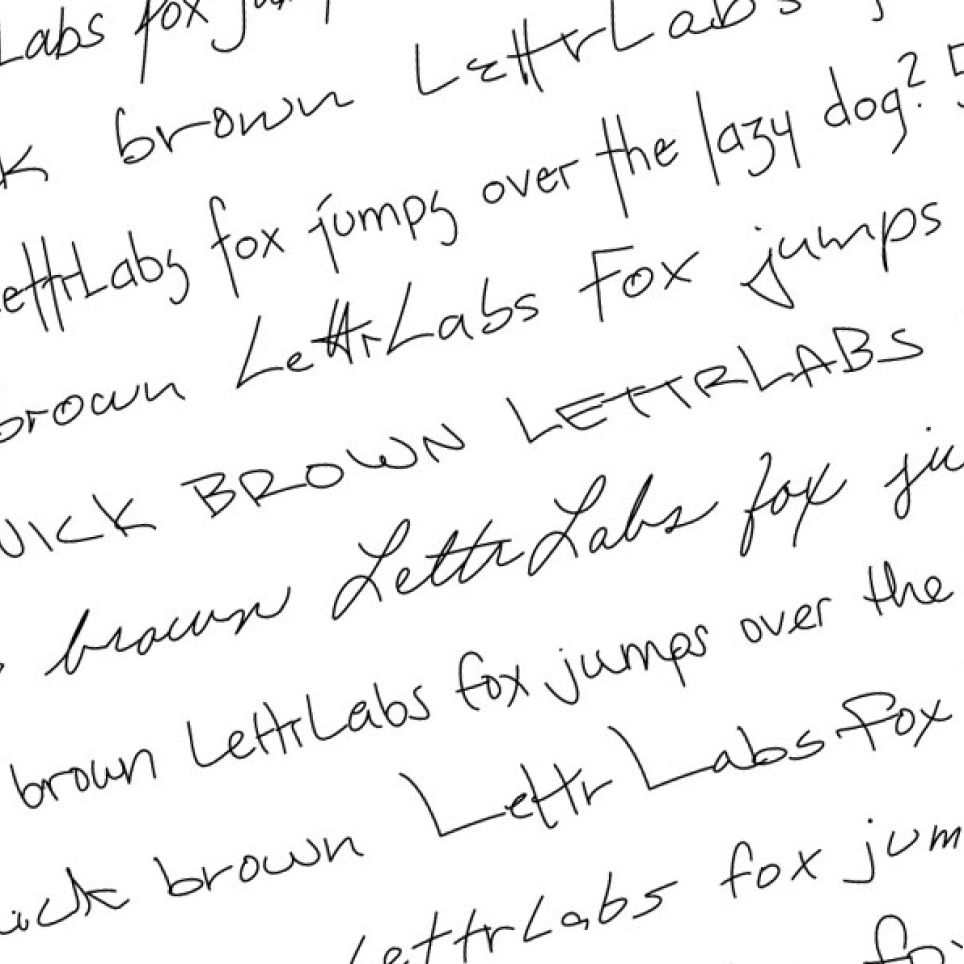 Labs fox jum
k brown LettrLabs j
ettrLabs fox jumps over the lazy dog? 5
brown LettrLabs Fox jumps
UICK BROWN LETTRLABS
brown LettrLabs fox ju
brown LettrLabs fox jumps over the
uick brown LettrLabs Fox
LettrLabs fox jum
fo